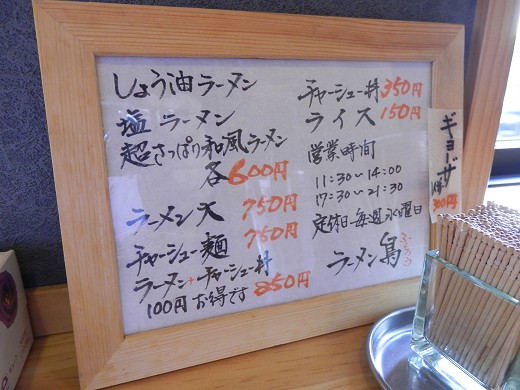 しょう油ラーメン
塩ラーメン
超さっぱり和風ラーメン
各600円
ラーメン大 750円
チャーシュー麺 750円
ラーメン+チャーシュー丼
100円お得です 850円
チャーシュー丼 350円
ライス 150円
営業時間
11:30～14:00
17:30～21:30
定休日毎週水曜日
ラーメン
ギョーザ
300円